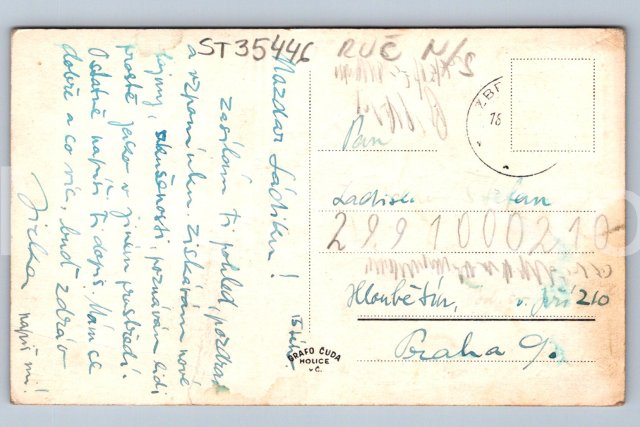 ST35446
RUČ N/S
Nazdar Ládíku!
Zasílám ti pohled, pozdrav
a vzpomínku. Získávám nové
dojmy, zkušenosti, poznávám lidi
prostě jako v jiném prostředí.
Ostatně napíši ti dopis. Mám se
dobře a co víc, buď zdráv
Jirka
napiš mi!
GRAFO ČUDA
HOLICE
v Č.
ZBR
Pan
2991000210
Hloubětín, 210
Praha 9.